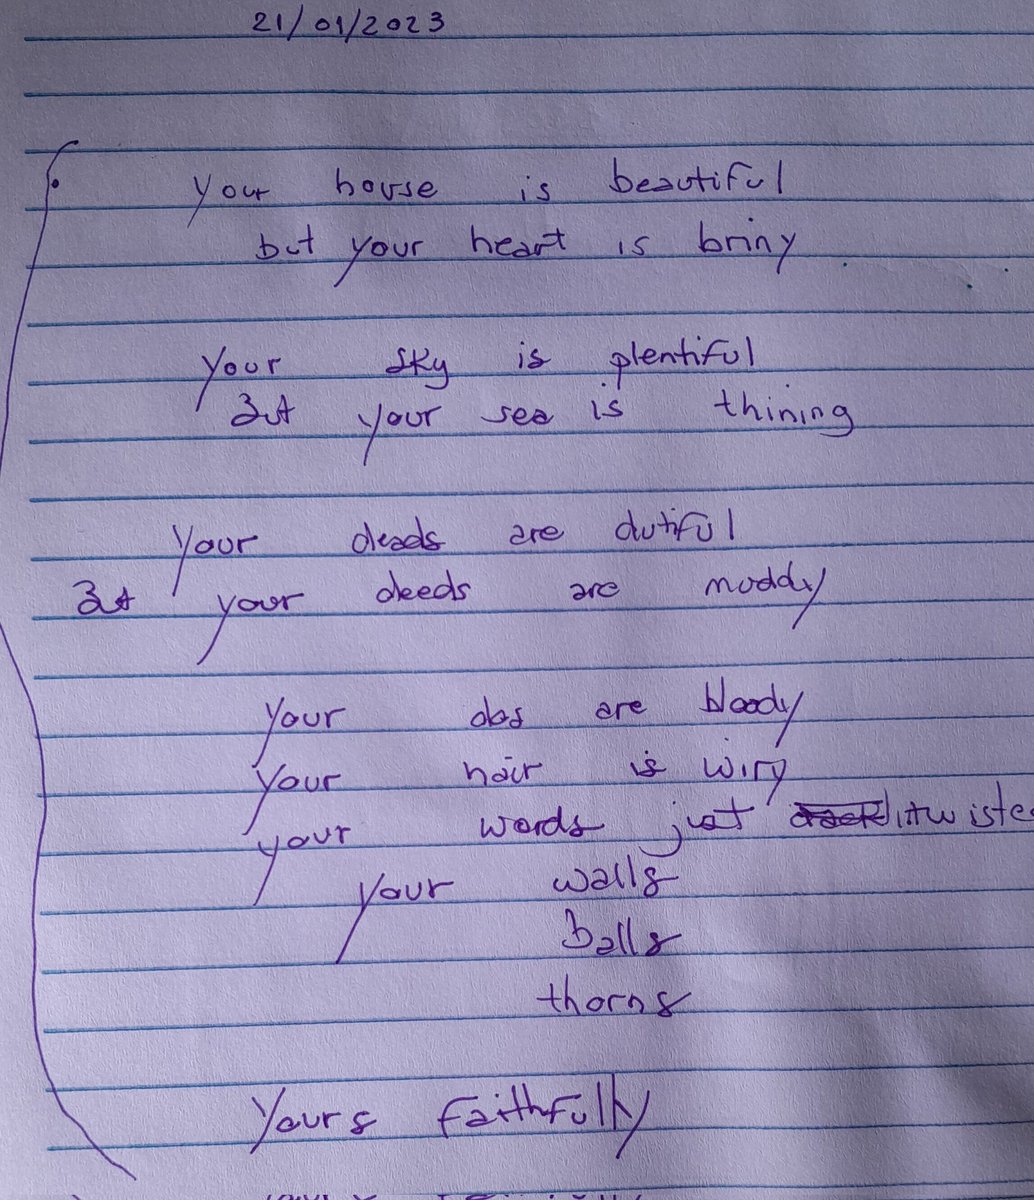 21/01/2023
Your house is beautiful
but your heart is briny
Your sky is plentiful
But your sea is thining
Your deads are dutiful
But your deeds are muddy
Your abs are bloody
Your hair is wiry
your words just
Your walls
Balls
thorns
Yours Faithfully